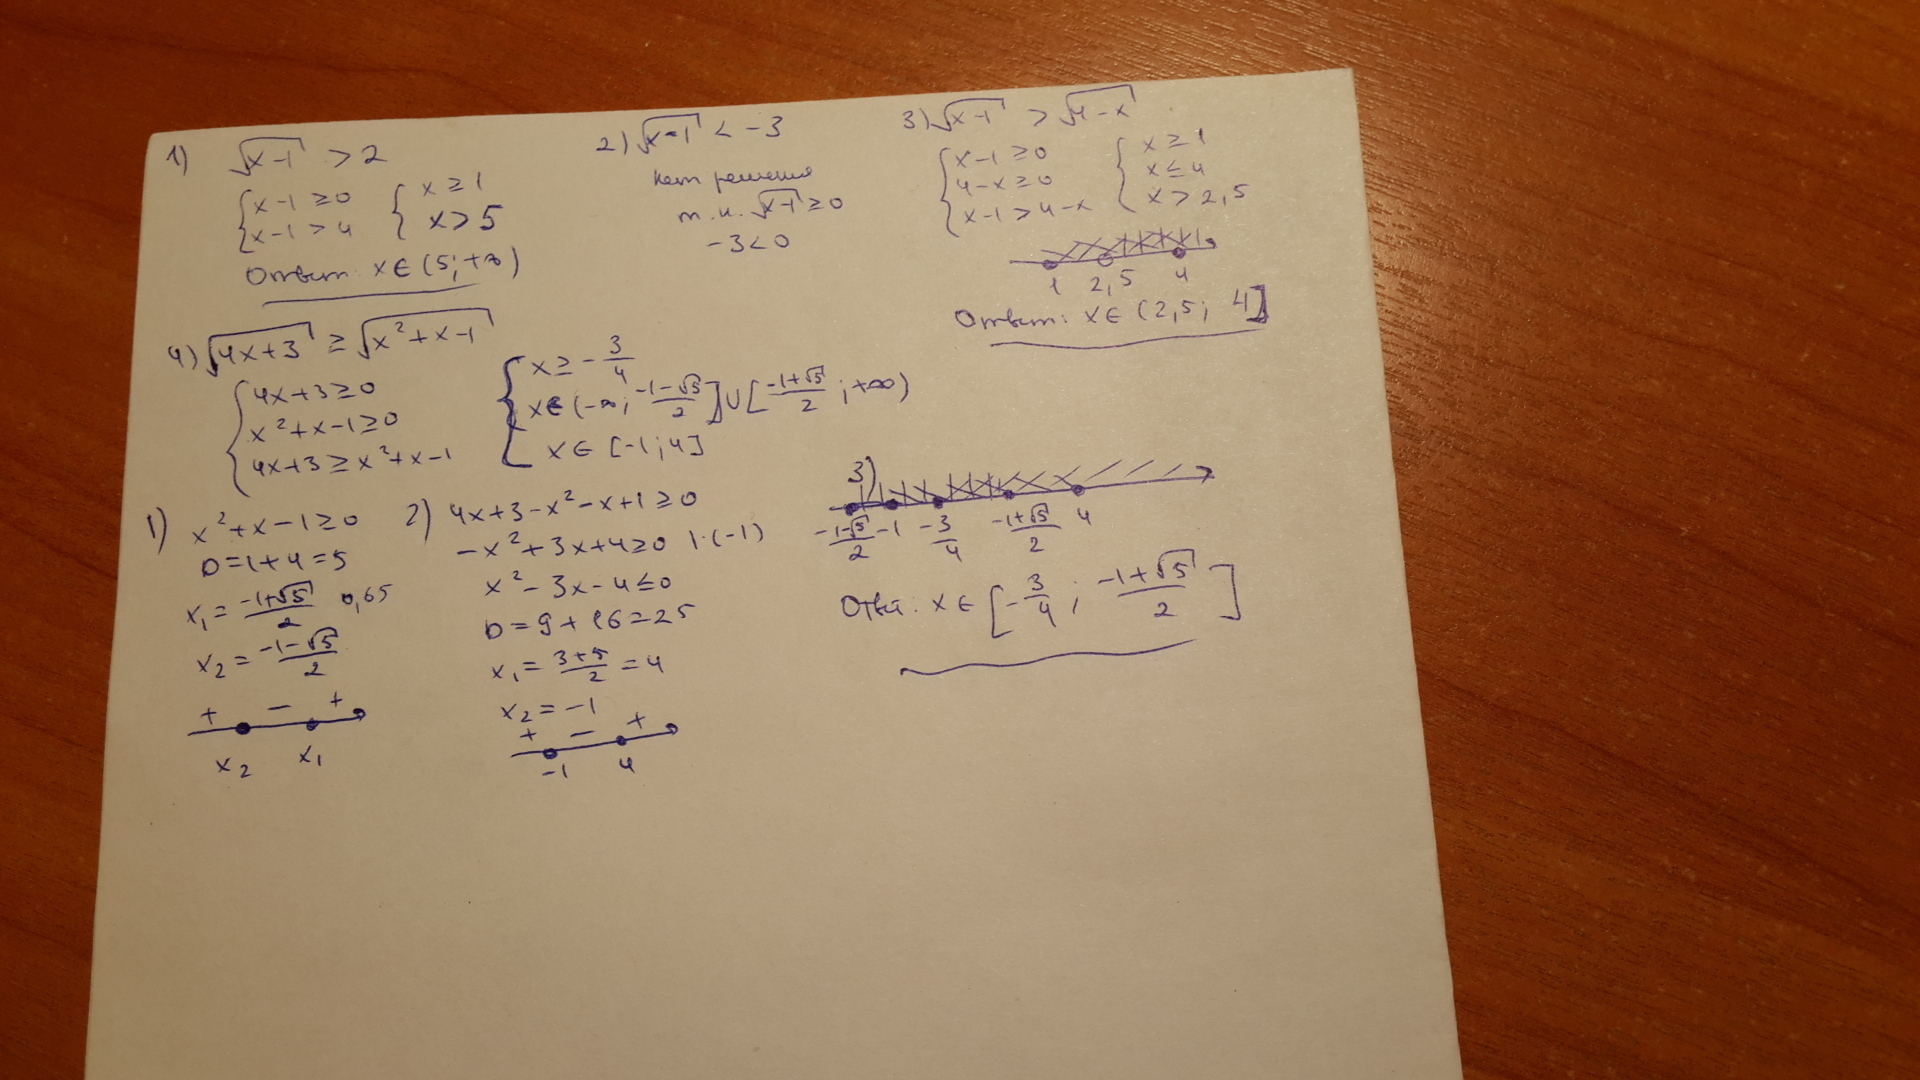 1) √(x-1) > 2
{ x-1 ≥ 0
x-1 > 4
{ x ≥ 1
x > 5
Ответ: x ∈ (5; +∞)
2) √(x-1) < -3
нет решения
т.к. √(x-1) ≥ 0
-3 < 0
3) √(x-1) > √(4-x)
{ x-1 ≥ 0
4-x ≥ 0
x-1 > 4-x
{ x ≥ 1
x ≤ 4
x > 2,5
1 2,5 4
Ответ: x ∈ (2,5; 4]
4) √(4x+3) ≥ √(x²+x-1)
{ 4x+3 ≥ 0
x²+x-1 ≥ 0
4x+3 ≥ x²+x-1
{ x ≥ -3/4
x ∈ (-∞; (-1-√5)/2] ∪ [(-1+√5)/2; +∞)
x ∈ [-1; 4]
1) x²+x-1 ≥ 0
D=1+4=5
x₁ = (-1+√5)/2 0,65
x₂ = (-1-√5)/2
+ - +
x₂ x₁
2) 4x+3-x²-x+1 ≥ 0
-x²+3x+4 ≥ 0 |·(-1)
x²-3x-4 ≤ 0
D=9+16=25
x₁ = (3+5)/2 = 4
x₂ = -1
+ - +
-1 4
3)
(-1-√5)/2 -1 -3/4 (-1+√5)/2 4
Отв: x ∈ [-3/4; (-1+√5)/2]